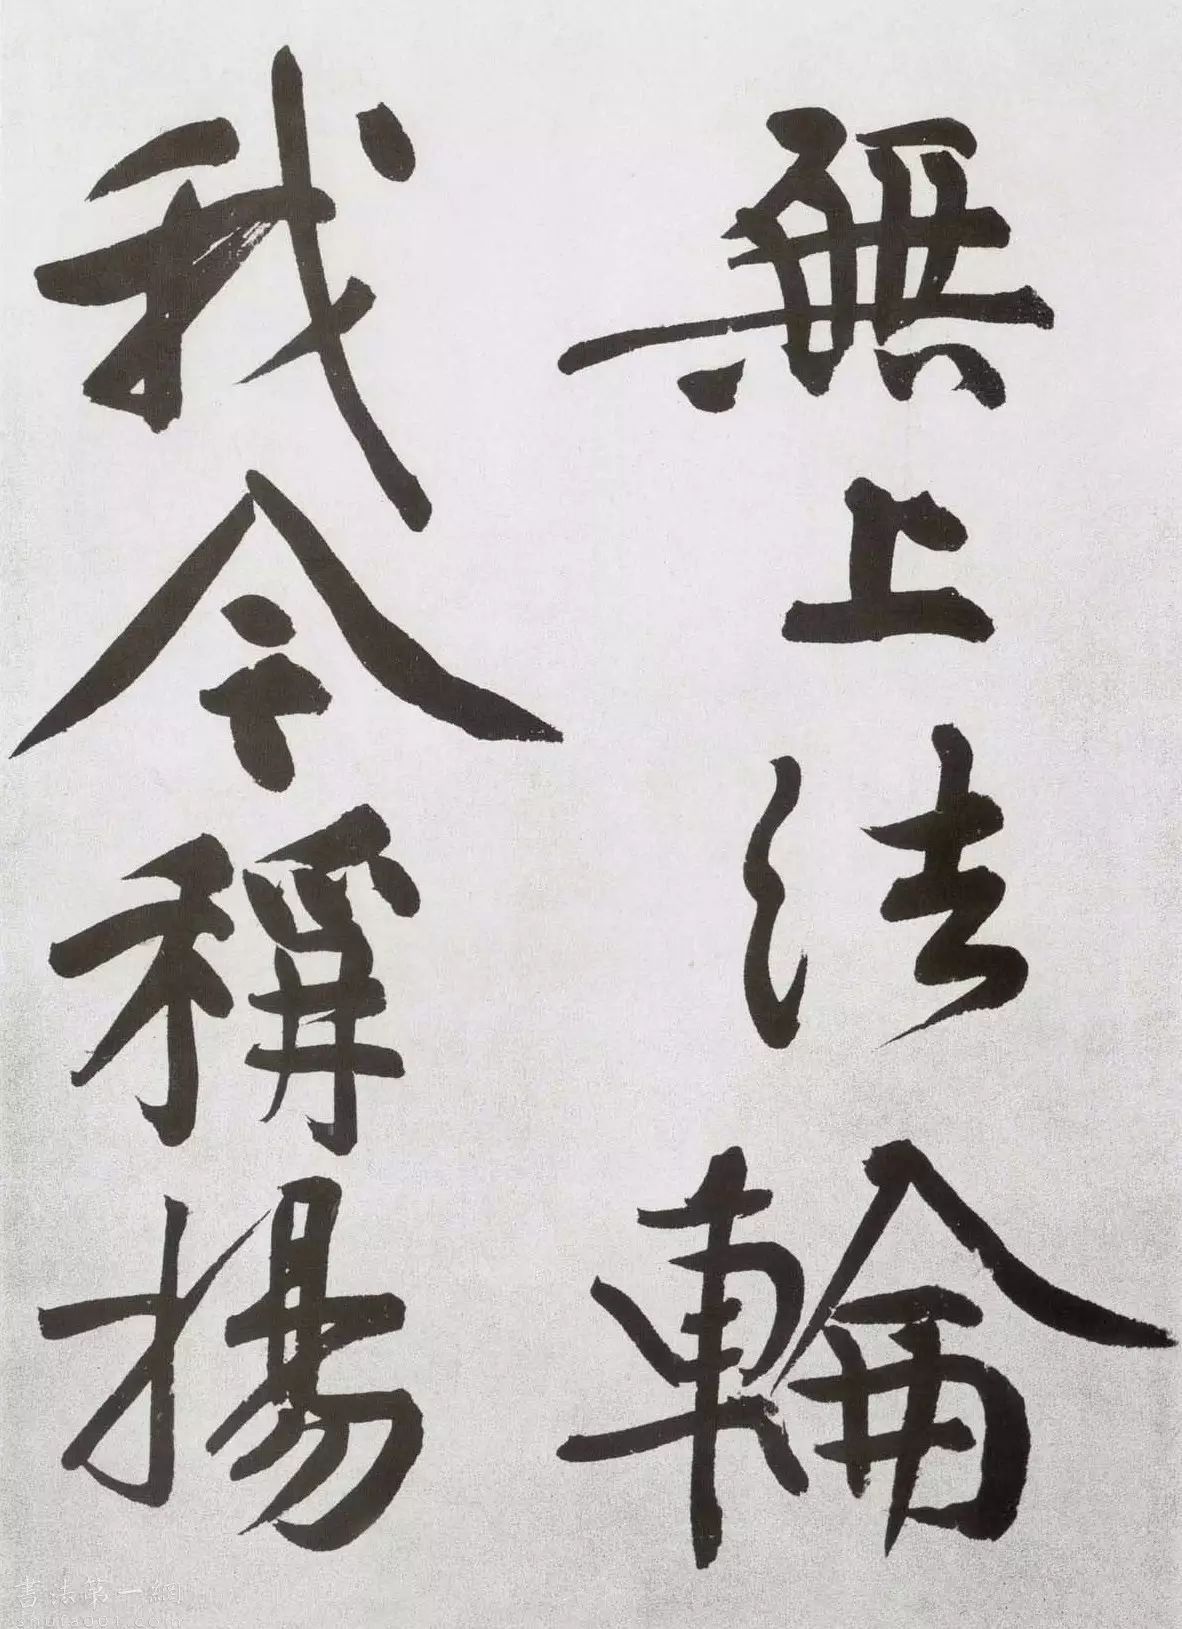 無上法輪
我今稱揚
書法第一網
shufa001.com